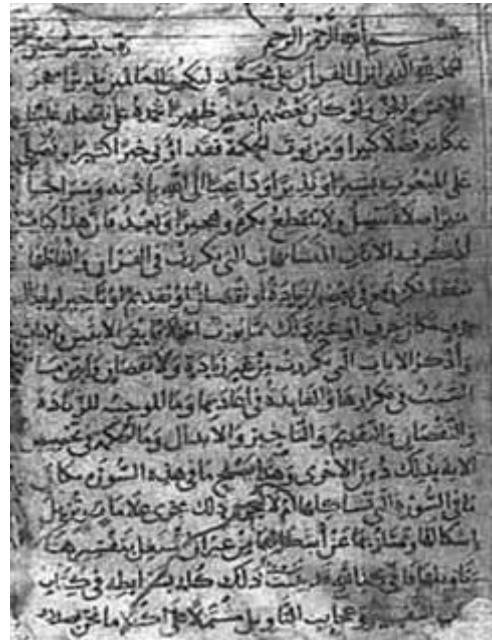 بسم الله الرحمن الرحيم رب يسر
الحمد لله الذي انزل الفرقان على محمد ليكون للعالمين نذيرا من
الإنس والجن ولو كان بعضهم لبعض ظهيرا نحمده على تفضله علينا
بكتابه فضلا كبيرا ومن يؤت الحكمة فقد اوتي خيرا كثيرا ونصلي
على المبعوث بشيرا ونذيرا وداعيا الى الله باذنه وسراجا
منيرا صلاة تتصل ولا تنقطع بكرة وهجيرا وبعد فان هذا كتاب
أذكر فيه الايات المتشابهات التي تكررت في القران والفاظها
متفقة ولكن وقع في بعضها زيادة أو نقصان أو تقديم أو تاخير او ابدال
حرف مكان حرف او غير ذلك مما يوجب اختلافا بين الايتين والايات
وأذكر الايات التي تكررت من غير زيادة ولا نقصان وابين ما
السبب في تكرارها والفايدة في اعادتها وما الموجب للزيادة
والنقصان والتقديم والتاخير والابدال وما الحكمة في تخصيص
الاية بذلك دون الاخرى وهل كان يصلح ما في هذه السورة مكان
ما في السورة التي تشاكلها ام لا ليجري ذلك مجرى علامات تزيل
إشكالها وتمتاز بها عن أشكالها من غير ان أشتغل بتفسيرها
وتاويلها فاني قد ذلك كله بشرايطه في كتاب
التفسير وعجايب التاويل مشتملا على اكثر ما نحن بصدده